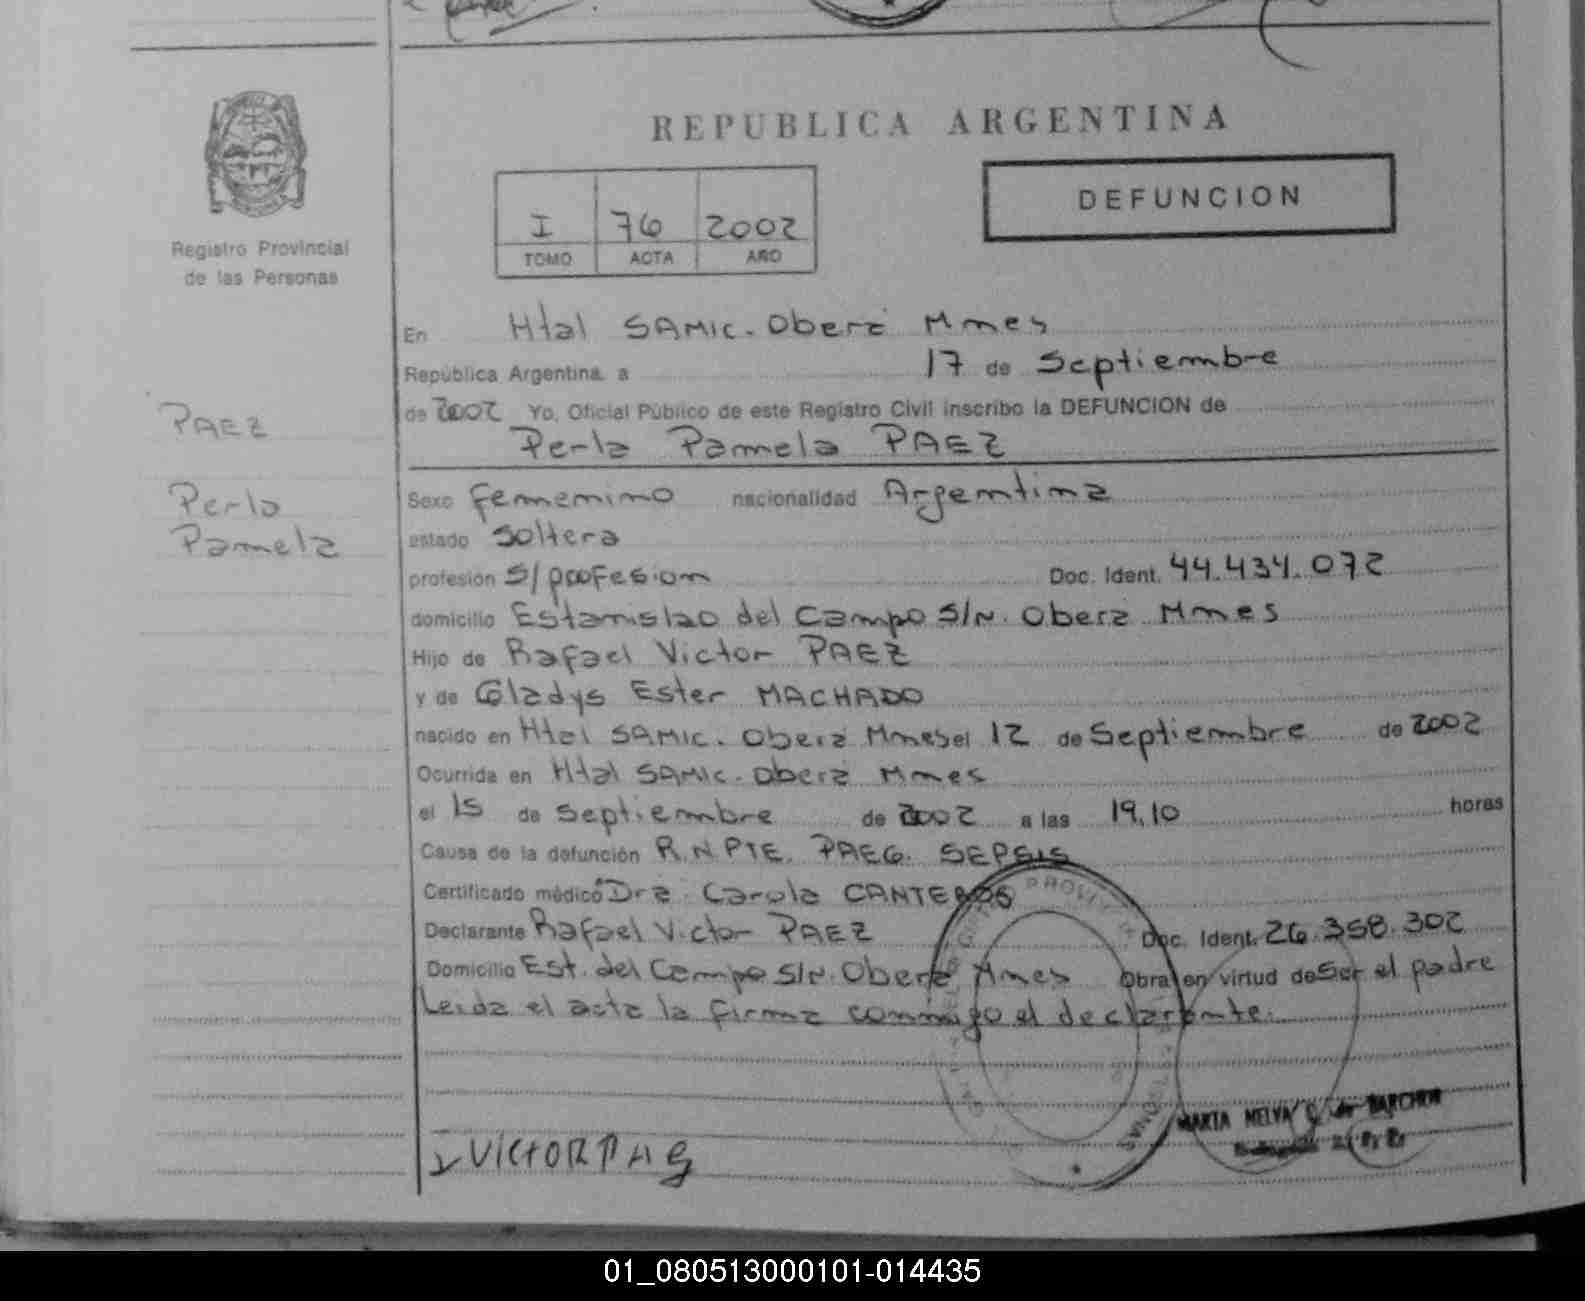 REPUBLICA ARGENTINA
DEFUNCION
I 76 2002
TOMO ACTA AÑO
Registro Provincial
de las Personas
PAEZ
Perla
Pamela
En Htal SAMIC. Oberá Mnes
República Argentina a 17 de Septiembre
de 2002 Yo, Oficial Público de este Registro Civil inscribo la DEFUNCION de
Perla Pamela PAEZ
Sexo femenino nacionalidad Argentina
estado Soltera
profesión S/profesion Doc. Ident. 44.434.072
domicilio Estanislao del Campo S/N. Oberá Mnes
Hijo de Rafael Victor PAEZ
y de Gladys Ester MACHADO
nacido en Htal SAMIC. Oberá Mnes el 12 de Septiembre de 2002
Ocurrida en Htal SAMIC. Oberá Mnes
el 15 de Septiembre de 2002 a las 19,10 horas
Causa de la defunción R.N PTE. PAEG. SEPSIS
Certificado médico Dra. Carola CANTEROS
Declarante Rafael Victor PAEZ Doc. Ident. 26.358.302
Domicilio Est. del Campo S/N. Oberá Mnes Obra en virtud de Ser el padre
Leída el acta la firma conmigo el declarante.
MARTA MELVA G. de
VICTOR PAG
01_080513000101-014435